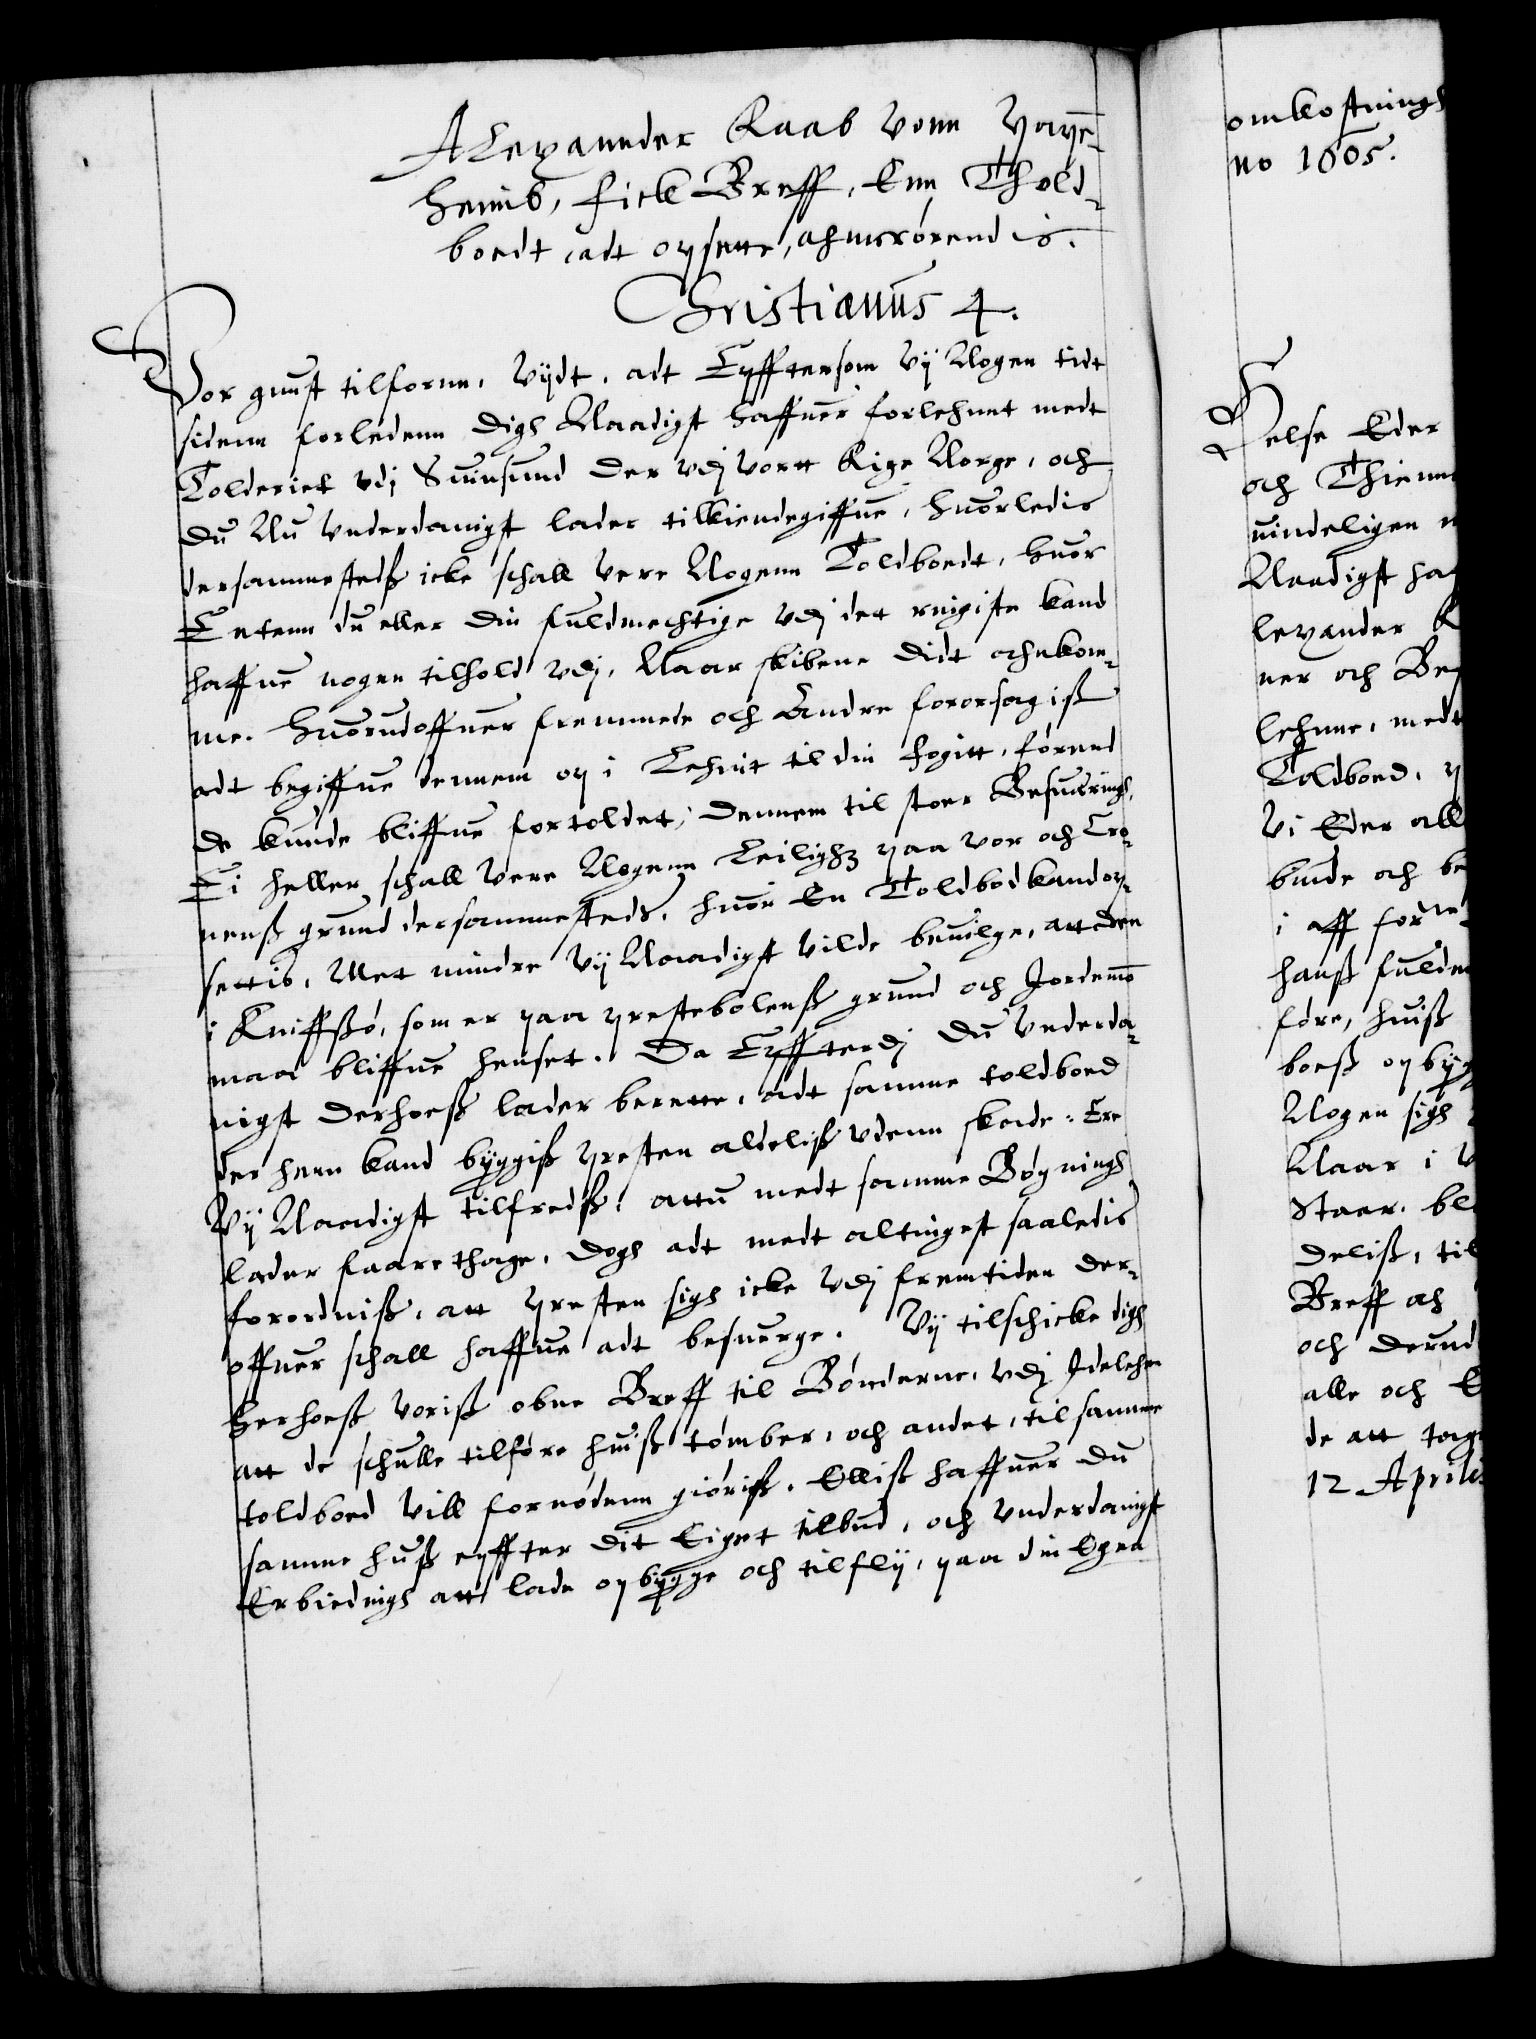 Alexannder Raab vonn Papē-
heimb, fick Breff, Enn Thold-
boedt, adt opsette, anrørendis.
Christianus 4.
Vor gunst tilfornn, Vijdt, adt Effttersom Vij Nogen tidt
sidenn forledenn digh Naadigst haffuer forlehnet medt
Tolderiet vdj Suinsund der vdj vortt Rige Norge, och
du Nu vnderdanigst lader tilkiendegiffue, huorledis
dersammestedß icke schall vere Nogenn Toldboedt, huor
Entenn du eller din fuldmechtige vdj det ringiste kand
haffue nogen tilhold vdj, Naar skibene didt ahnkom-
me. Huorudoffuer fremmede och Andre fororsagiß
adt begiffue dennem op i Lehnit til din fogitt, førend
de kunde bliffue fortoldet, dennem til stoer Besuerringh,
Ei heller schall vere Nogenn Leilighz paa vor och Cro-
nenß grund dersammesteds, huor En Toldbod kand op-
settis, Met mindre Vij Naadigst vilde beuilge, att den
i Kniffßø, som er paa prestebolenß grund och Jordemō
maa bliffue henset. Da Effterdj du vnderda-
nigst derhoeß lader berette, adt samme toldboed
der henn kand byggiß presten aldeliß vdenn skade: Ere
Vij Naadigst tilfredß, attu medt samme Bygningh
lader faarethage, dogh adt medt altingest saaledis
forordniß, att presten sigh icke vdj fremtiden der-
offuer schall haffue adt besuerge. Vij tilschicke digh
herhoeß voriß obne Breff til Bønderne, vdj Jdelehen
att de schulle tilføre huiß tømber, och andet, til samme
toldboed vill fornødenn giøriß. Elliß haffuer du
samme huß effter dit Eiget tilbud, och vnderdanigst
Erbiedingh att lade opbygge och tilflij, paa din Egen
omkostningh
no 1605.
Helse Eder
och Thienn
uindeligen
Naadigst ha
lexander R
ner och Be
lehnne, medt
Toldboed,
Vi Eder all
binde och be
i aff for
hanß fuldm
føre, huiß
boeß opbyg
Nogen sigh
Naar i V
Staer. bl
deliß, til
Breff ah
och derud
alle och E
de att tag
12 Aprilis